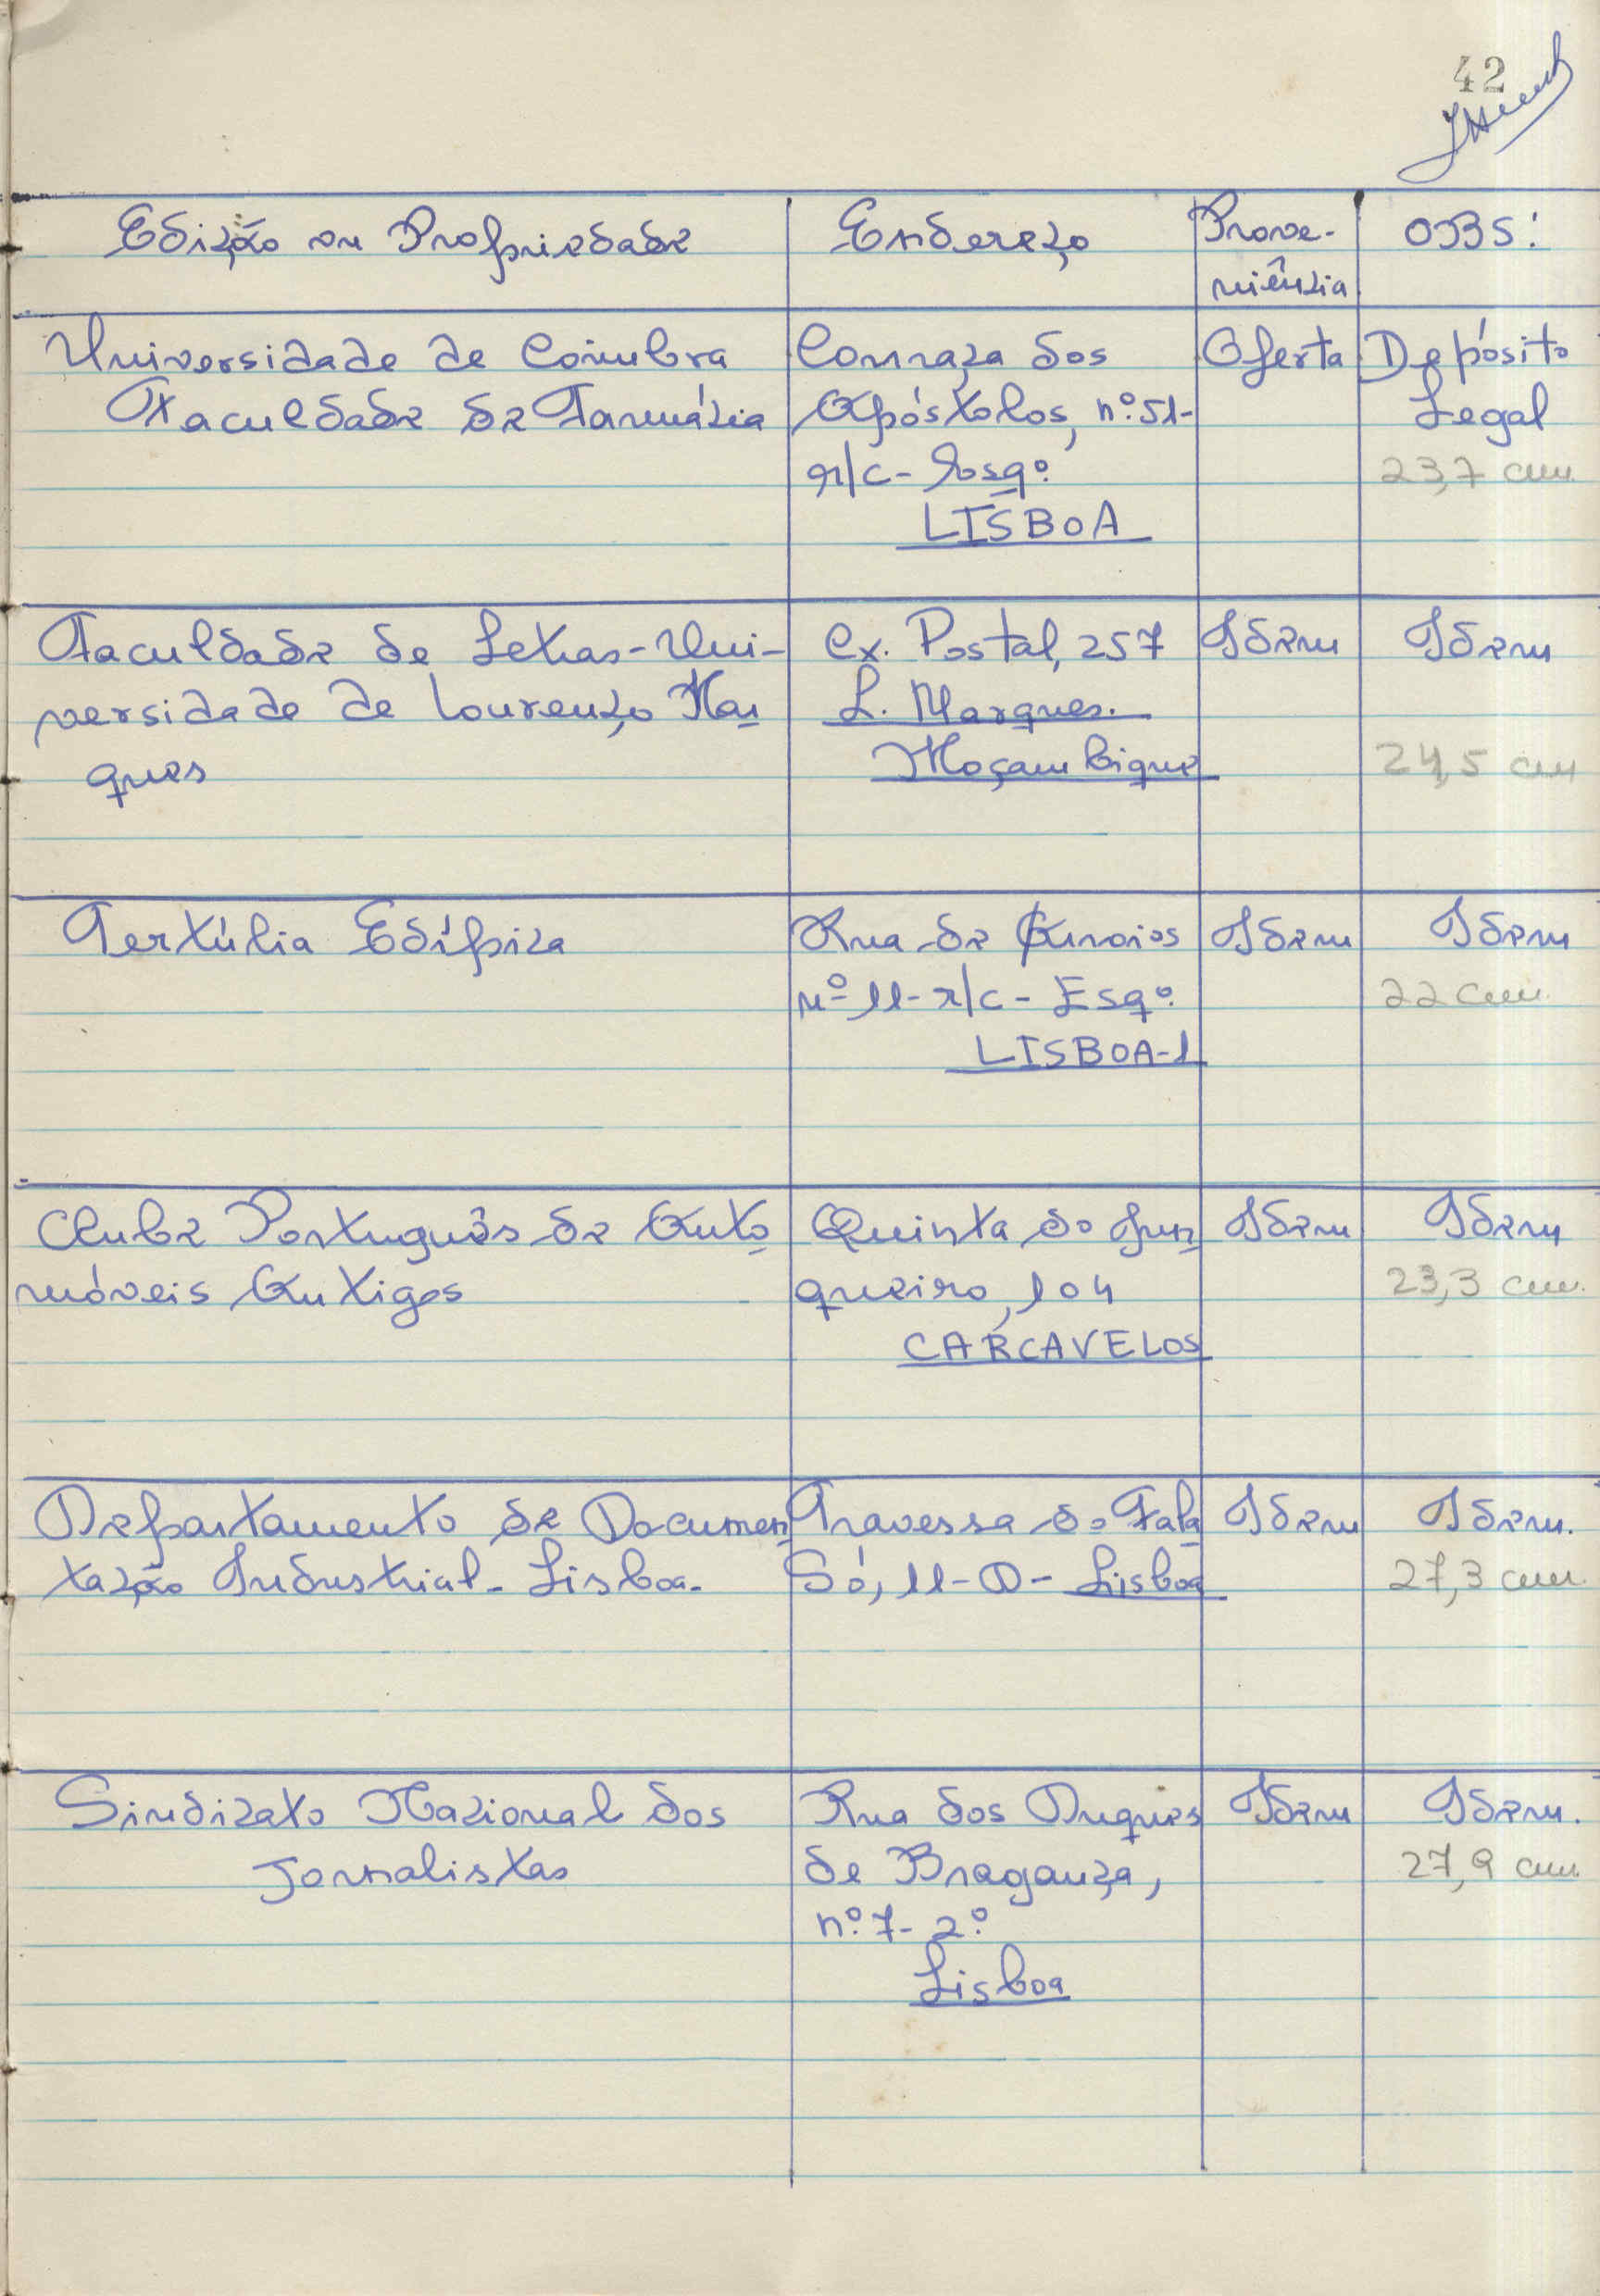 42
Edição ou Propriedade
Endereço
Prove-
niência
OBS:
Universidade de Coimbra
Faculdade de Farmácia
Couraça dos
Apóstolos, nº. 51-
r/c - Esqº.
LISBOA
Oferta
Depósito
Legal
23,7 cm.
Faculdade de Letras - Uni-
versidade de Lourenço Mar
ques
Cx. Postal, 257
L. Marques.
Moçambique
Idem
Idem
24,5 cm
Tertúlia Edípica
Rua de Arroios
nº 11 - r/c - Esqº.
LISBOA-1
Idem
Idem
22 cm.
Clube Português de Auto
móveis Antigos
Quinta do Jun
queiro, 104
CARCAVELOS
Idem
Idem
23,3 cm.
Departamento de Documen
tação Industrial - Lisboa.
Travessa do Fala
Só, 11-D - Lisboa
Idem
Idem.
27,3 cm.
Sindicato Nacional dos
Jornalistas
Rua dos Duques
de Bragança,
nº. 7 - 2º.
Lisboa
Idem
Idem.
27,9 cm.